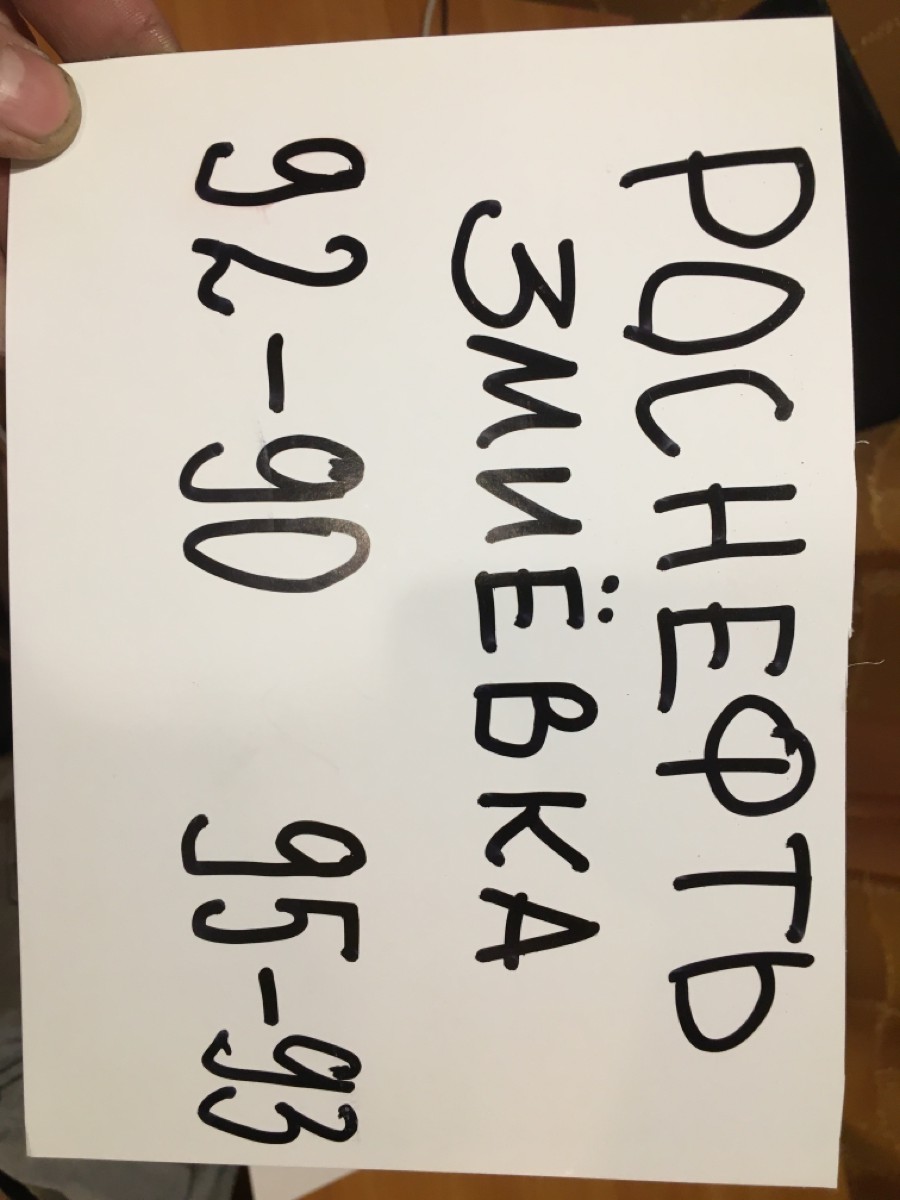 РОСНЕФТЬ
ЗМИЁВКА
92-90 95-93